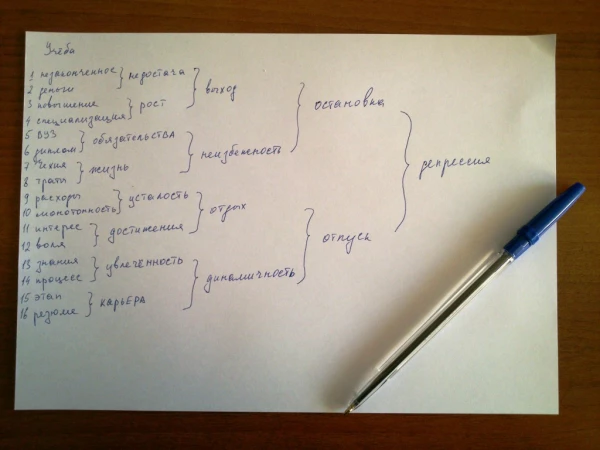 Учёба
1 незаконченное
2 деньги
недостача
3 повышение
4 специализация
рост
выход
5 ВУЗ
6 диплом
обязательства
7 Чехия
8 траты
жизнь
неизбежность
остановка
9 расходы
10 монотонность
усталость
11 интерес
12 воля
достижения
отдых
13 знания
14 процесс
увлечённость
15 этап
16 резюме
карьера
динамичность
отпуск
депрессия